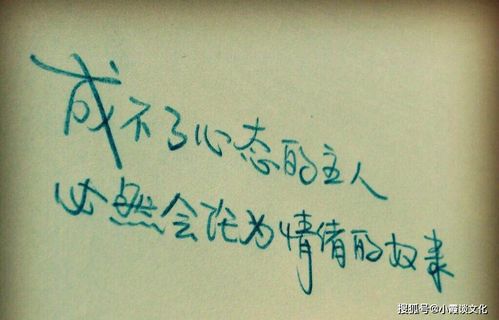 成不了心态的主人
必然会沦为情绪的奴隶
搜狐号@小霞谈文化